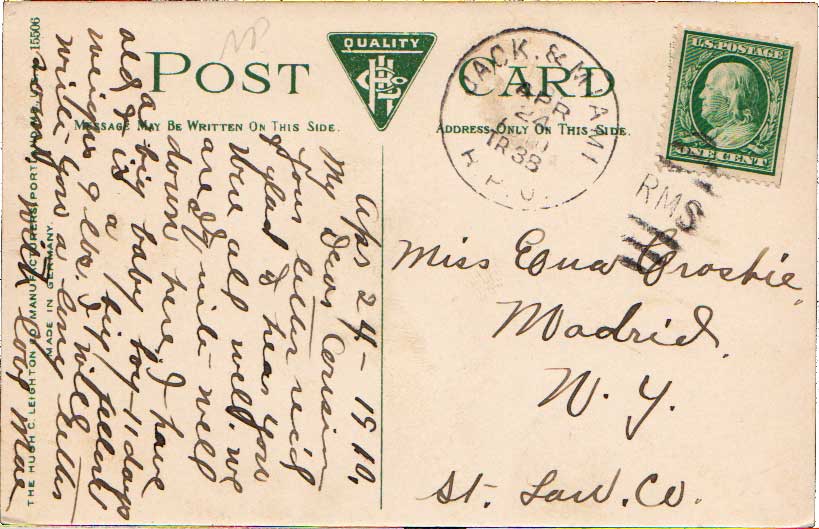 POST CARD
QUALITY
HCL Co
MESSAGE MAY BE WRITTEN ON THIS SIDE.
ADDRESS ONLY ON THIS SIDE.
JACK. & MIAMI
APR
24
TR 38
R.P.O.
U.S. POSTAGE
ONE CENT
RMS
Apr 24 - 1910,
My Dear Cousin
Your letter rec'd
glad to hear you
were all well. we
are quite well
down here, I have
a big boy - 11 days
old & is a big baby
weighs 9 lbs. I will
write you a long letter
soon
with love Mae
Miss Edna Crosbie,
Madrid,
N. Y.
St. Law. Co.
THE HUGH C. LEIGHTON CO., MANUFACTURERS, PORTLAND, ME., U.S.A.
MADE IN GERMANY.
15506